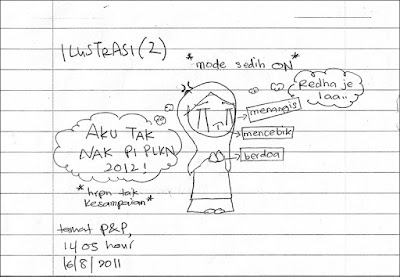 ILUSTRASI (2)
*mode sedih ON*
Redha je
laa..
menangis
mencebik
berdoa
AKU TAK
NAK PI PLKN
2012!
*hrpn tak
kesampaian*
tamat P&P,
1405 hour
16/8/2011